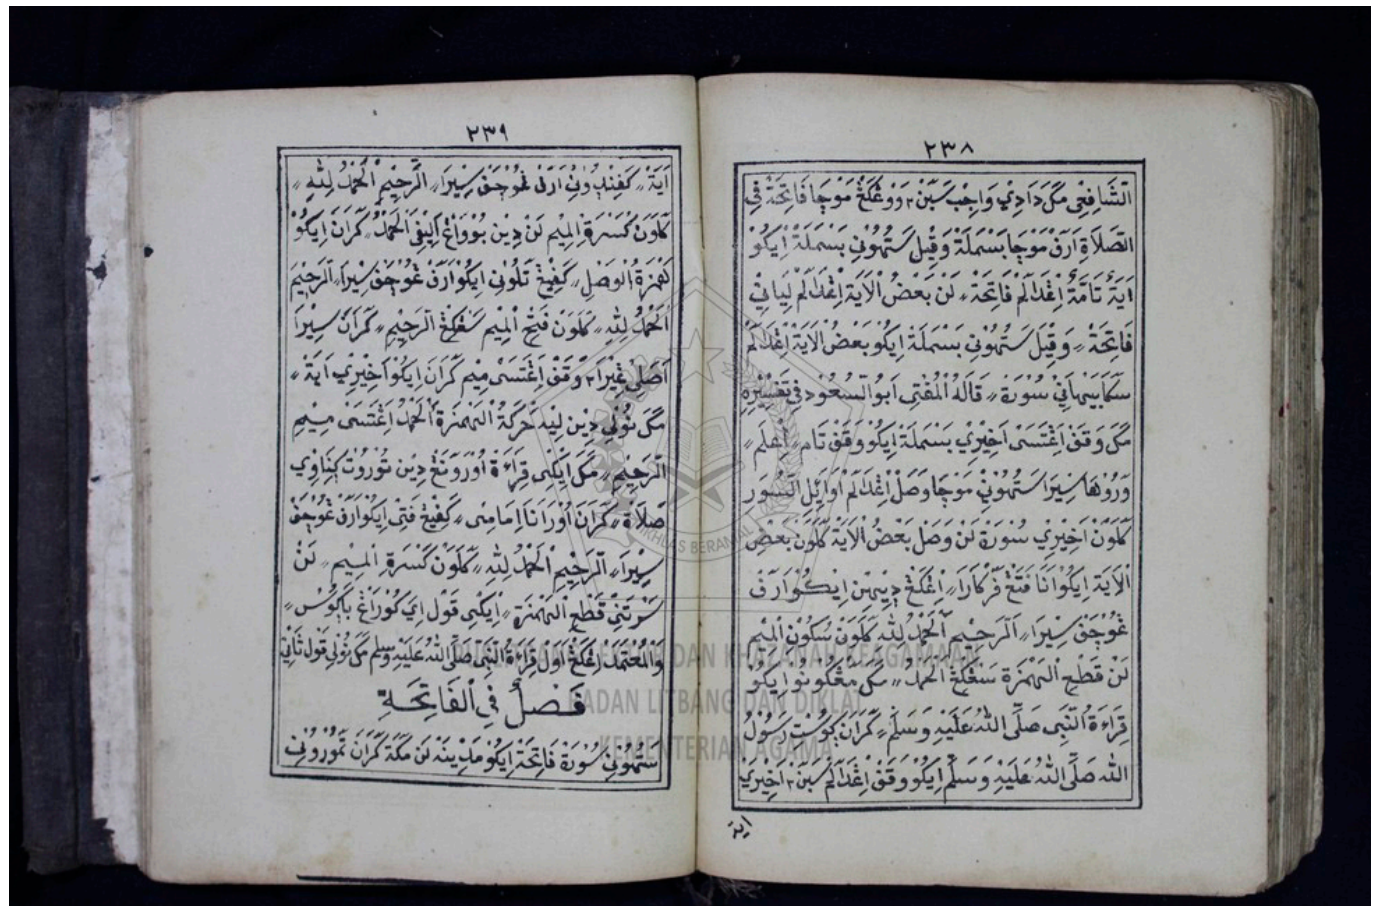 ٢٣٨
الشافعي مك دادي واجب سبن ٢ ووڠكڠ موچا فاتحة في
الصلاة ارف موچا بسملة وقيل ستهوني بسملة ايكو
اية تامة اڠدالم فاتحة لن بعض الاية اڠدالم لياني
فاتحة وقيل ستهوني بسملة ايكو بعض الاية اڠدالم
سورة قاله المفتي ابو السعود في تفسيره
مك وقف اڠتسى اخيري بسملة ايكو وقف تام اعلم
وروها سيرا ستهوني موچا وصل اڠدالم اوائل السور
كلون اخيري سورة لن وصل بعض الاية كلون بعض
الاية ايكو انا فتڠ فركارا اڠكڠ ديهين ايكو ارف
ڠوچف سيرا الرحيم الحمد لله كلون سكون الميم
لن قطع الهمزة سڠكڠ الحمد مك مڠكونو ايكو
قراءة النبي صلى الله عليه وسلم كران رسول
الله صلى الله عليه وسلم ايكو وقف اڠدالم سبن ٢ اخيري
اية
٢٣٩
اية كفندوني ارف ڠوچف سيرا الرحيم الحمد لله
كلون كسرة الميم لن دين بوواڠ اليفي الحمد كران ايكو
همزة الوصل كفيڠ تلوني ايكو ارف ڠوچف سيرا الرحيم
الحمد لله كلون فتح الميم سڠكڠ الرحيم كران سيرا
اصلي وقف اڠتسى ميم كران ايكو اخيري اية
مك نولي دين ليه حركة الهمزة الحمد اڠتسى ميم
الرحيم مك ايكى قراءة اورونڠ دين توروت
صلاة كران اورانا امامى كفيڠ فتى ايكو ارف ڠوچف
سيرا الرحيم الحمد لله كلون كسرة الميم لن
سرتني قطع الهمزة ايكى قول اي كوراڠ باكوس
والمعتمد اڠكڠ اول قراءة النبي صلى الله عليه وسلم مك نولي قول ثاني
فصل في الفاتحة
ستهوني سورة فاتحة ايكو مدينة لن مكة كران تموروني